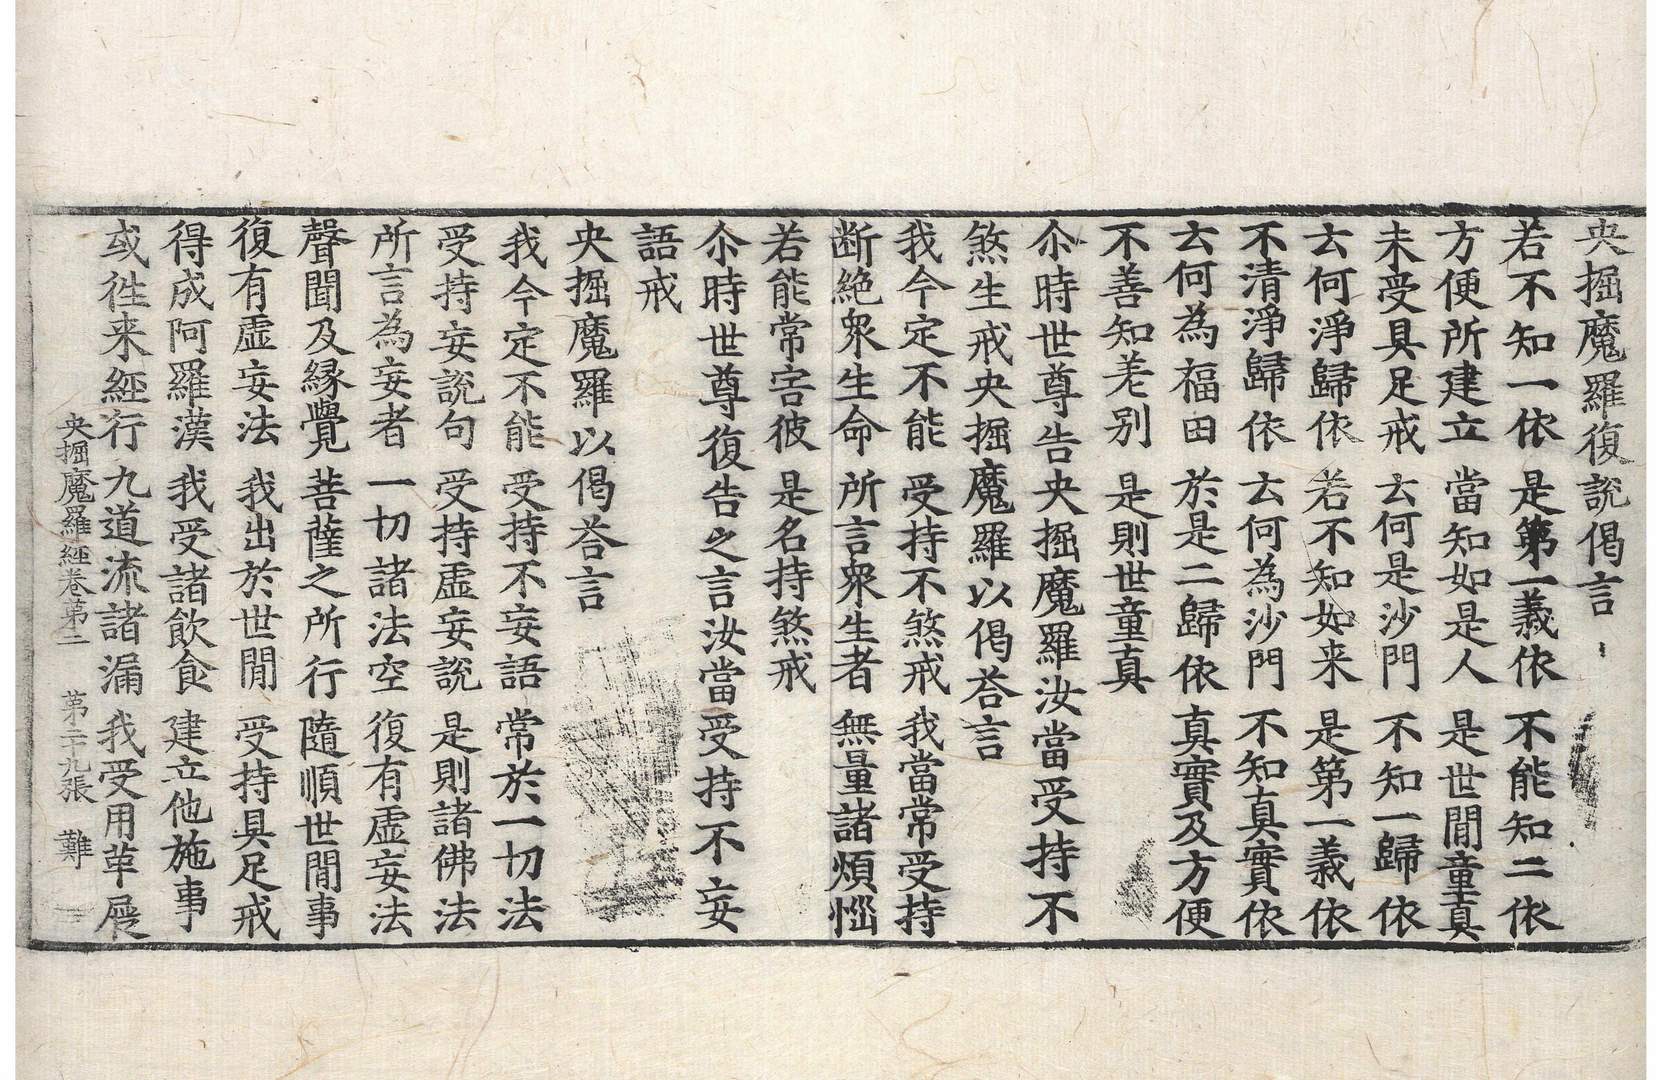 央掘魔羅復說偈言
若不知一依 是第一義依 不能知二依
方便所建立 當知如是人 是世閒童真
未受具足戒 云何是沙門 不知一歸依
云何淨歸依 若不知如来 是第一義依
不清淨歸依 云何為沙門 不知真實依
云何為福田 於是二歸依 真實及方便
不善知差别 是則世童真
尒時世尊告央掘魔羅汝當受持不
煞生戒央掘魔羅以偈荅言
我今定不能 受持不煞戒 我當常受持
断絶衆生命 所言衆生者 無量諸煩惱
若能常害彼 是名持煞戒
尒時世尊復告之言汝當受持不妄
語戒
央掘魔羅以偈荅言
我今定不能 受持不妄語 常於一切法
受持妄說句 受持虛妄說 是則諸佛法
所言為妄者 一切諸法空 復有虛妄法
聲聞及縁覺 菩薩之所行 隨順世閒事
復有虛妄法 我出於世閒 受持具足戒
得成阿羅漢 我受諸飲食 建立他施事
或徃来經行 九道流諸漏 我受用革屣
央掘魔羅經卷第二 第二十九張 難